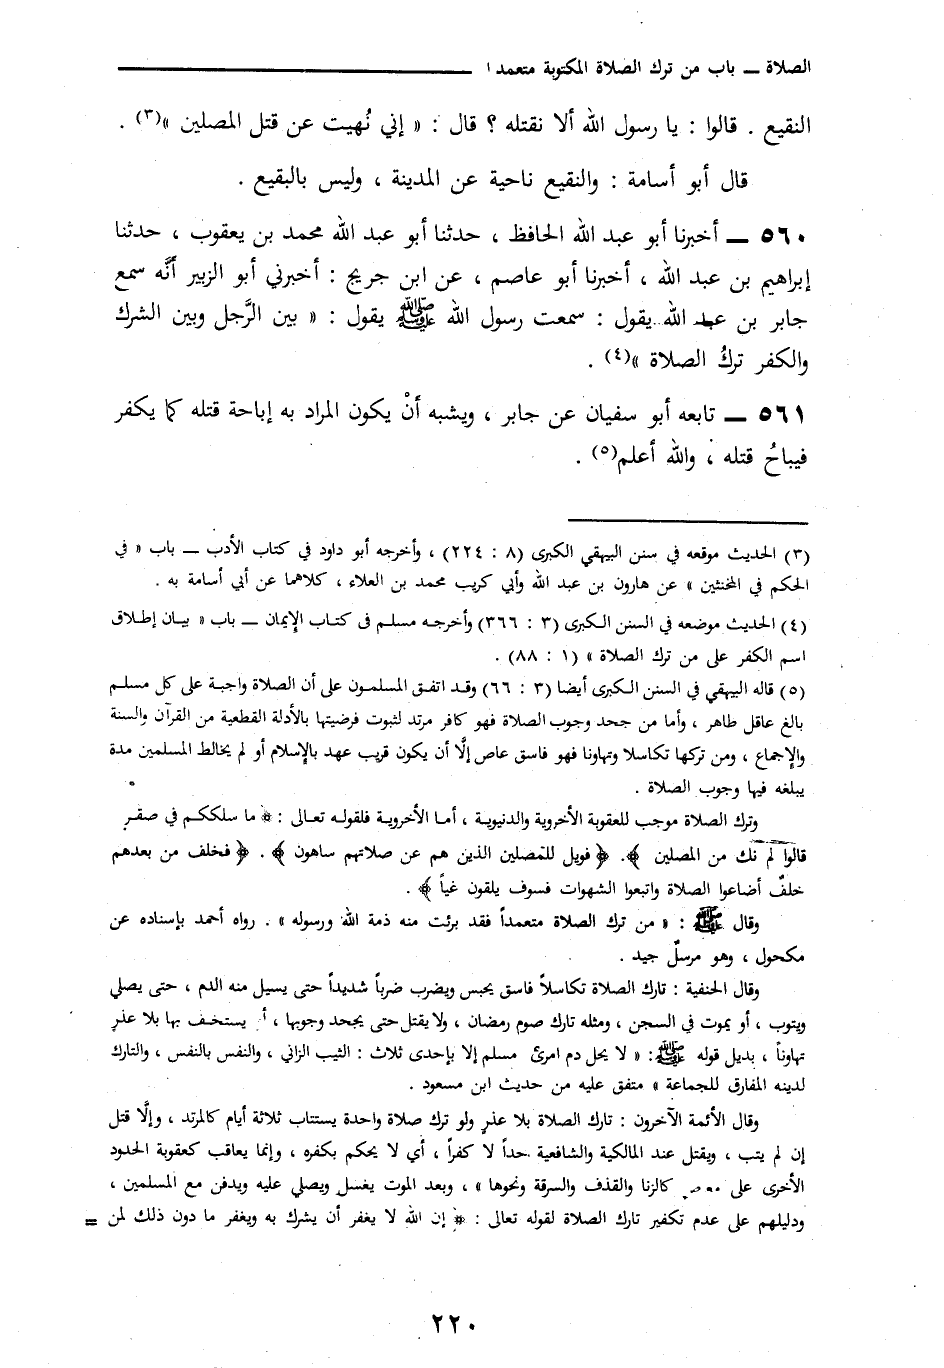 الصلاة ــ باب من ترك الصلاة المكتوبة متعمدا
النقيع . قالوا : يا رسول الله ألا نقتله ؟ قال : « إني نُهيت عن قتل المصلين »(٣) .
قال أبو أسامة : والنقيع ناحية عن المدينة ، وليس بالبقيع .
٥٦٠ ــ أخبرنا أبو عبد الله الحافظ ، حدثنا أبو عبد الله محمد بن يعقوب ، حدثنا
إبراهيم بن عبد الله ، أخبرنا أبو عاصم ، عن ابن جريج : أخبرني أبو الزبير أنَّه سمع
جابر بن عبد الله يقول : سمعت رسول الله ﷺ يقول : « بين الرَّجل وبين الشرك
والكفر تركُ الصلاة »(٤) .
٥٦١ ــ تابعه أبو سفيان عن جابر ، ويشبه أنْ يكون المراد به إباحة قتله كما يكفر
فيباحُ قتله ، والله أعلم(٥) .
(٣) الحديث موقعه في سنن البيهقي الكبرى (٨ : ٢٢٤) ، وأخرجه أبو داود في كتاب الأدب ــ باب « في
الحكم في المخنثين » عن هارون بن عبد الله وأبي كريب محمد بن العلاء ، كلاهما عن أبي أسامة به .
(٤) الحديث موضعه في السنن الكبرى (٣ : ٣٦٦) وأخرجه مسلم في كتاب الإيمان ــ باب « بيان إطلاق
اسم الكفر على من ترك الصلاة » (١ : ٨٨) .
(٥) قاله البيهقي في السنن الكبرى أيضا (٣ : ٦٦) وقد اتفق المسلمون على أن الصلاة واجبة على كل مسلم
بالغ عاقل طاهر ، وأما من جحد وجوب الصلاة فهو كافر مرتد لثبوت فرضيتها بالأدلة القطعية من القرآن والسنة
والإجماع ، ومن تركها تكاسلا وتهاونا فهو فاسق عاص إلَّا أن يكون قريب عهد بالإسلام أو لم يخالط المسلمين مدة
يبلغه فيها وجوب الصلاة .
وترك الصلاة موجب للعقوبة الأخروية والدنيوية ، أما الأخروية فلقوله تعالى : ﴿ ما سلككم في صقر
قالوا لم نك من المصلين ﴾ . ﴿ فويل للمصلين الذين هم عن صلاتهم ساهون ﴾ . ﴿ فخلف من بعدهم
خلفٌ أضاعوا الصلاة واتبعوا الشهوات فسوف يلقون غياً ﴾ .
وقال ﷺ : « من ترك الصلاة متعمداً فقد برئت منه ذمة الله ورسوله » . رواه أحمد بإسناده عن
مكحول ، وهو مرسلٌ جيد .
وقال الحنفية : تارك الصلاة تكاسلاً فاسق يحبس ويضرب ضرباً شديداً حتى يسيل منه الدم ، حتى يصلي
ويتوب ، أو يموت في السجن ، ومثله تارك صوم رمضان ، ولا يقتل حتى يجحد وجوبها ، أو يستخف بها بلا عذرٍ
تهاوناً ، بديل قوله ﷺ : « لا يحل دم امرئ مسلم إلا بإحدى ثلاث : الثيب الزاني ، والنفس بالنفس ، والتارك
لدينه المفارق للجماعة » متفق عليه من حديث ابن مسعود .
وقال الأئمة الآخرون : تارك الصلاة بلا عذرٍ ولو ترك صلاة واحدة يستتاب ثلاثة أيام كالمرتد ، وإلَّا قتل
إن لم يتب ، ويقتل عند المالكية والشافعية حداً لا كفراً ، أي لا يحكم بكفره ، وإنما يعاقب كعقوبة الحدود
الأخرى على كالزنا والقذف والسرقة ونحوها » ، وبعد الموت يغسل ويصلي عليه ويدفن مع المسلمين ،
ودليلهم على عدم تكفير تارك الصلاة لقوله تعالى : ﴿ إن الله لا يغفر أن يشرك به ويغفر ما دون ذلك لمن =
٢٢٠